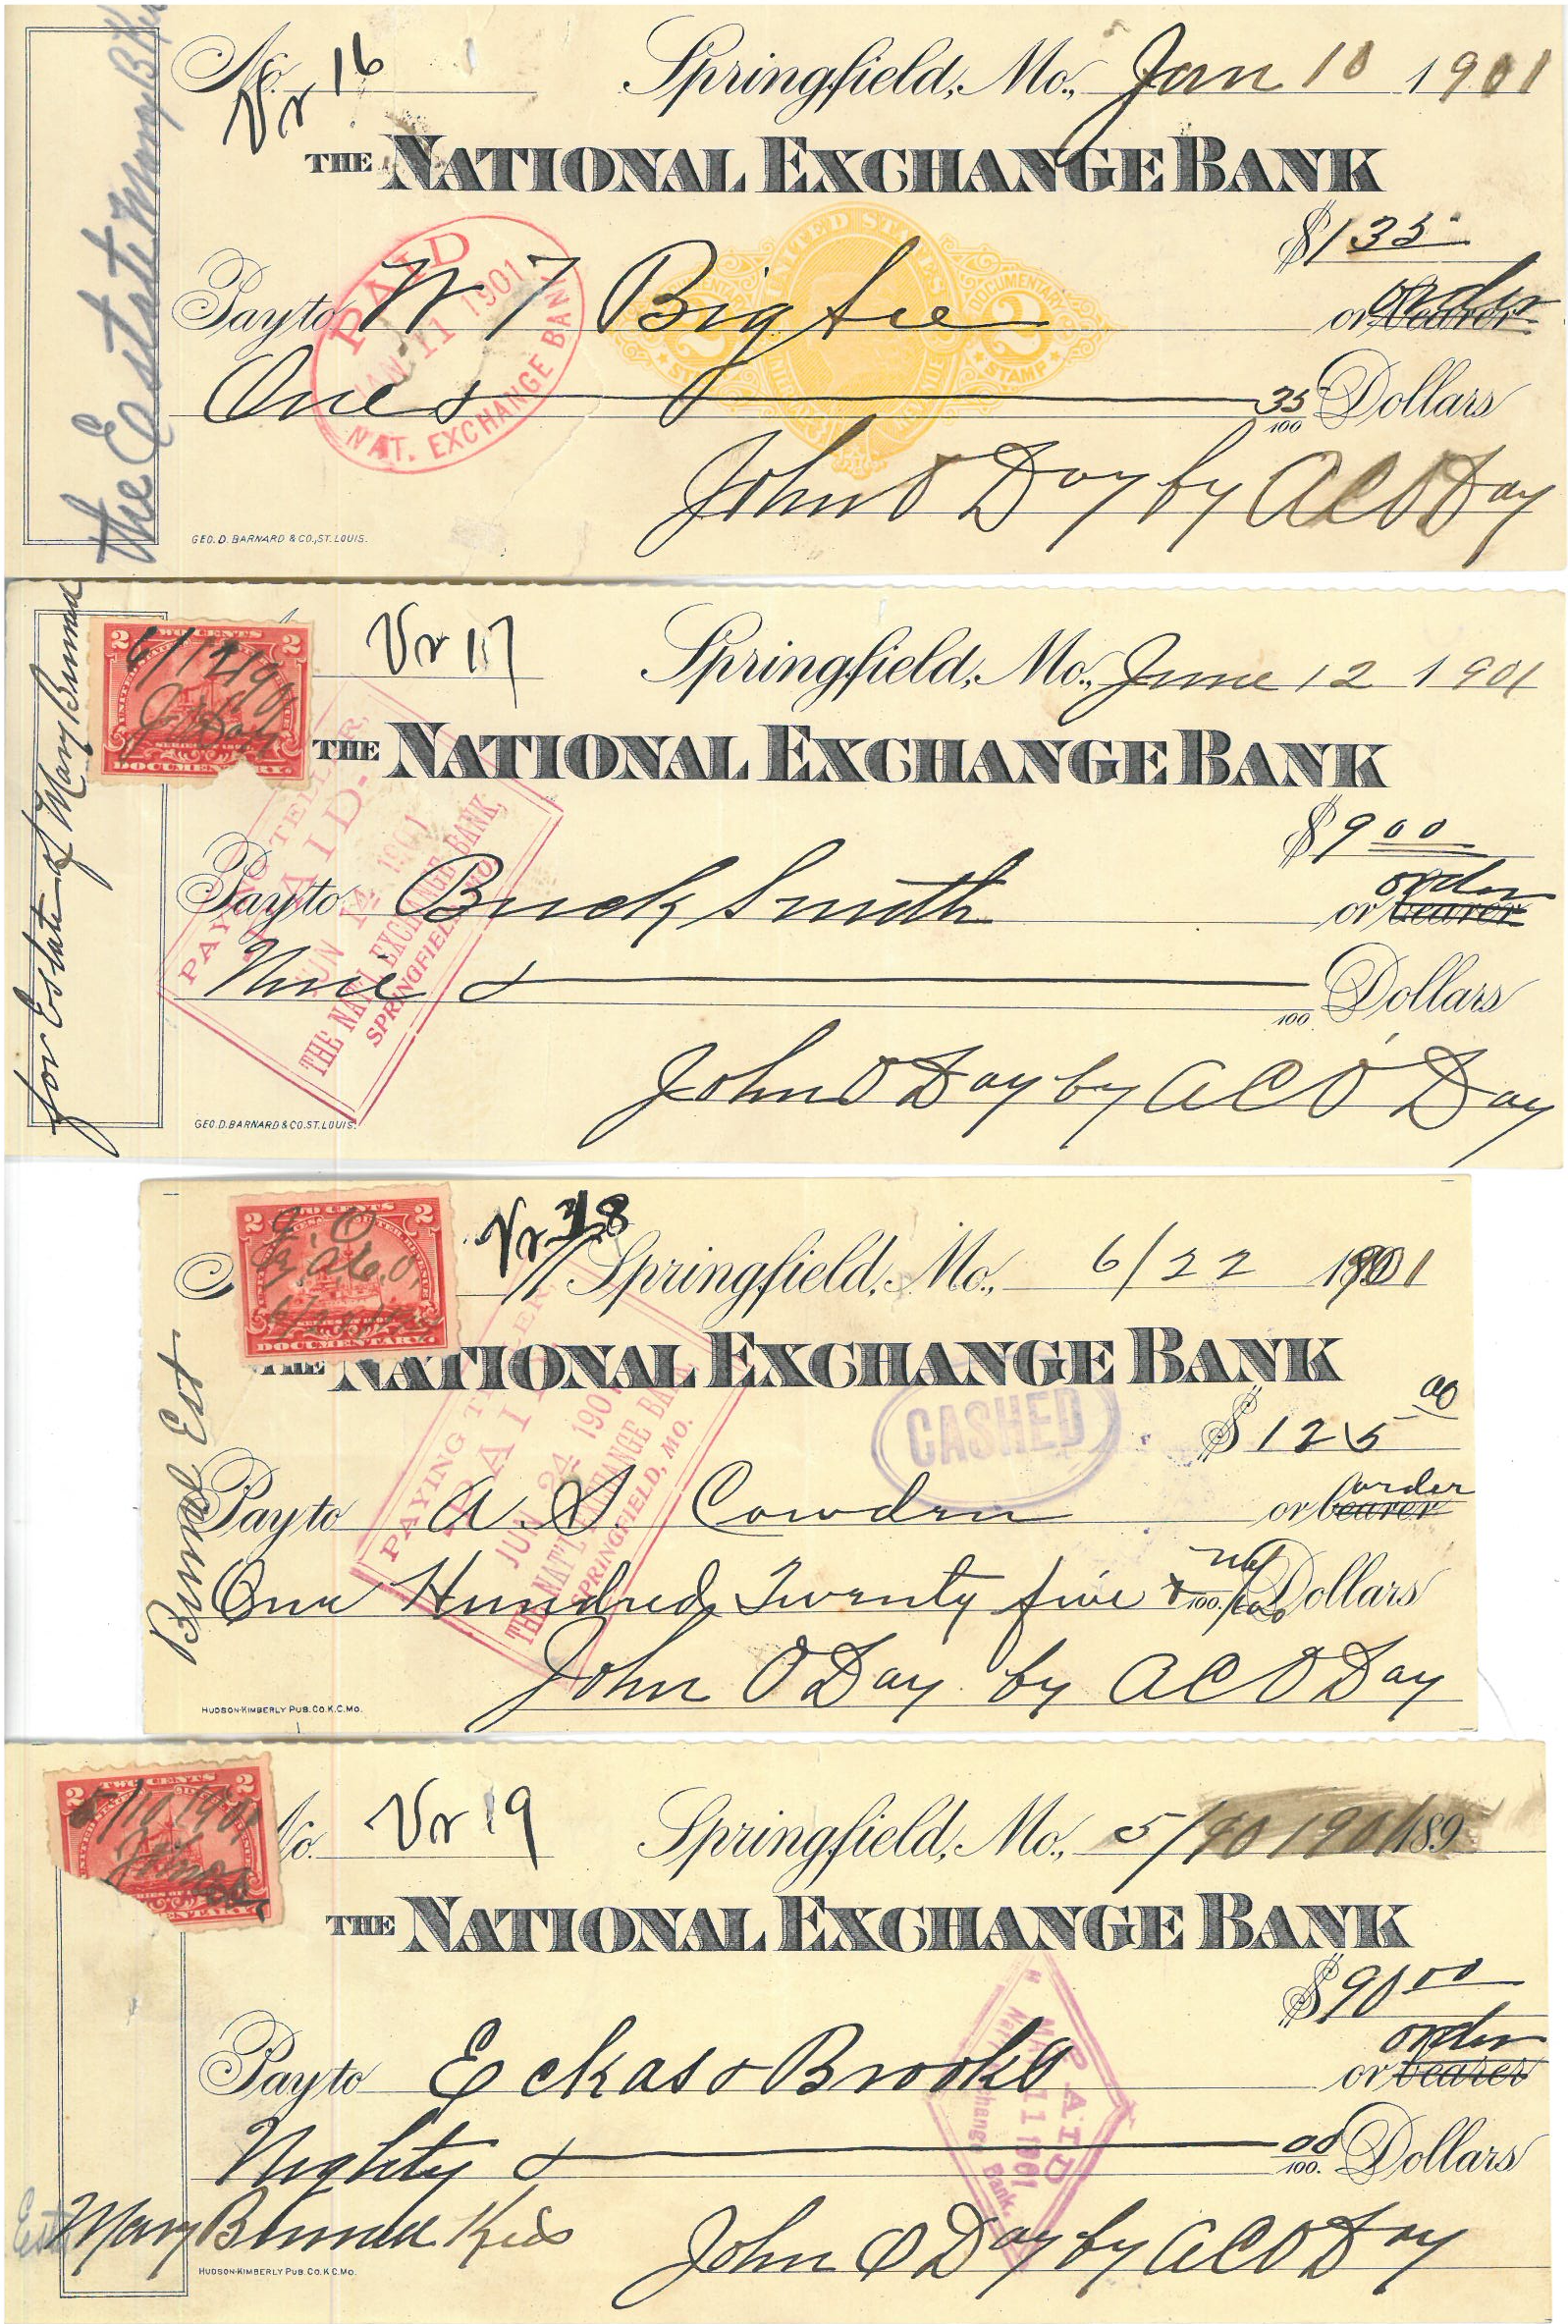 No. Vr 16 Springfield, Mo., Jan 10 1901
THE NATIONAL EXCHANGE BANK
$1 35
Pay to W F Bigbee or bearer order
One & 35/100 Dollars
John O Day by A C O Day
GEO. D. BARNARD & CO., ST. LOUIS.
the Estate Mary
PAID
JAN 11 1901
NAT. EXCHANGE BANK
UNITED STATES
DOCUMENTARY
2 2
STAMP
Vr 17 Springfield, Mo., June 12 1901
THE NATIONAL EXCHANGE BANK
$9 00
Pay to Buck Smith or bearer order
Nine & /100 Dollars
John O Day by A C O Day
GEO. D. BARNARD & CO. ST. LOUIS.
for Estate of Mary
2 TWO CENTS 2
6/12/901
J O Day
DOCUMENTARY.
PAYING TELLER,
PAID
JUN 14 1901
THE NAT'L EXCHANGE BANK,
SPRINGFIELD, MO.
Vr 18 Springfield, Mo., 6/22 1901
THE NATIONAL EXCHANGE BANK
$125 00
Pay to A. S. Cowden or bearer order
One Hundred Twenty five & no/100 Dollars
John O Day by A C O Day
HUDSON-KIMBERLY PUB. CO. K.C. MO.
Est
2 TWO CENTS 2
J. O
By A. C. O.
DOCUMENTARY.
PAYING TELLER
PAID
JUN 24 1901
THE NAT'L EXCHANGE BANK
SPRINGFIELD, MO.
CASHED
No. Vr 19 Springfield, Mo., 5/10 1901 189
THE NATIONAL EXCHANGE BANK
$90 00
Pay to Eckas & Brooks or bearer order
Nighty & 00/100. Dollars
Est Mary Kids John O Day by A C O Day
HUDSON-KIMBERLY PUB. CO. K.C. MO.
2 TWO CENTS 2
5/10/1901
PAID
MAY 11 1901
Nat'l Exchange Bank